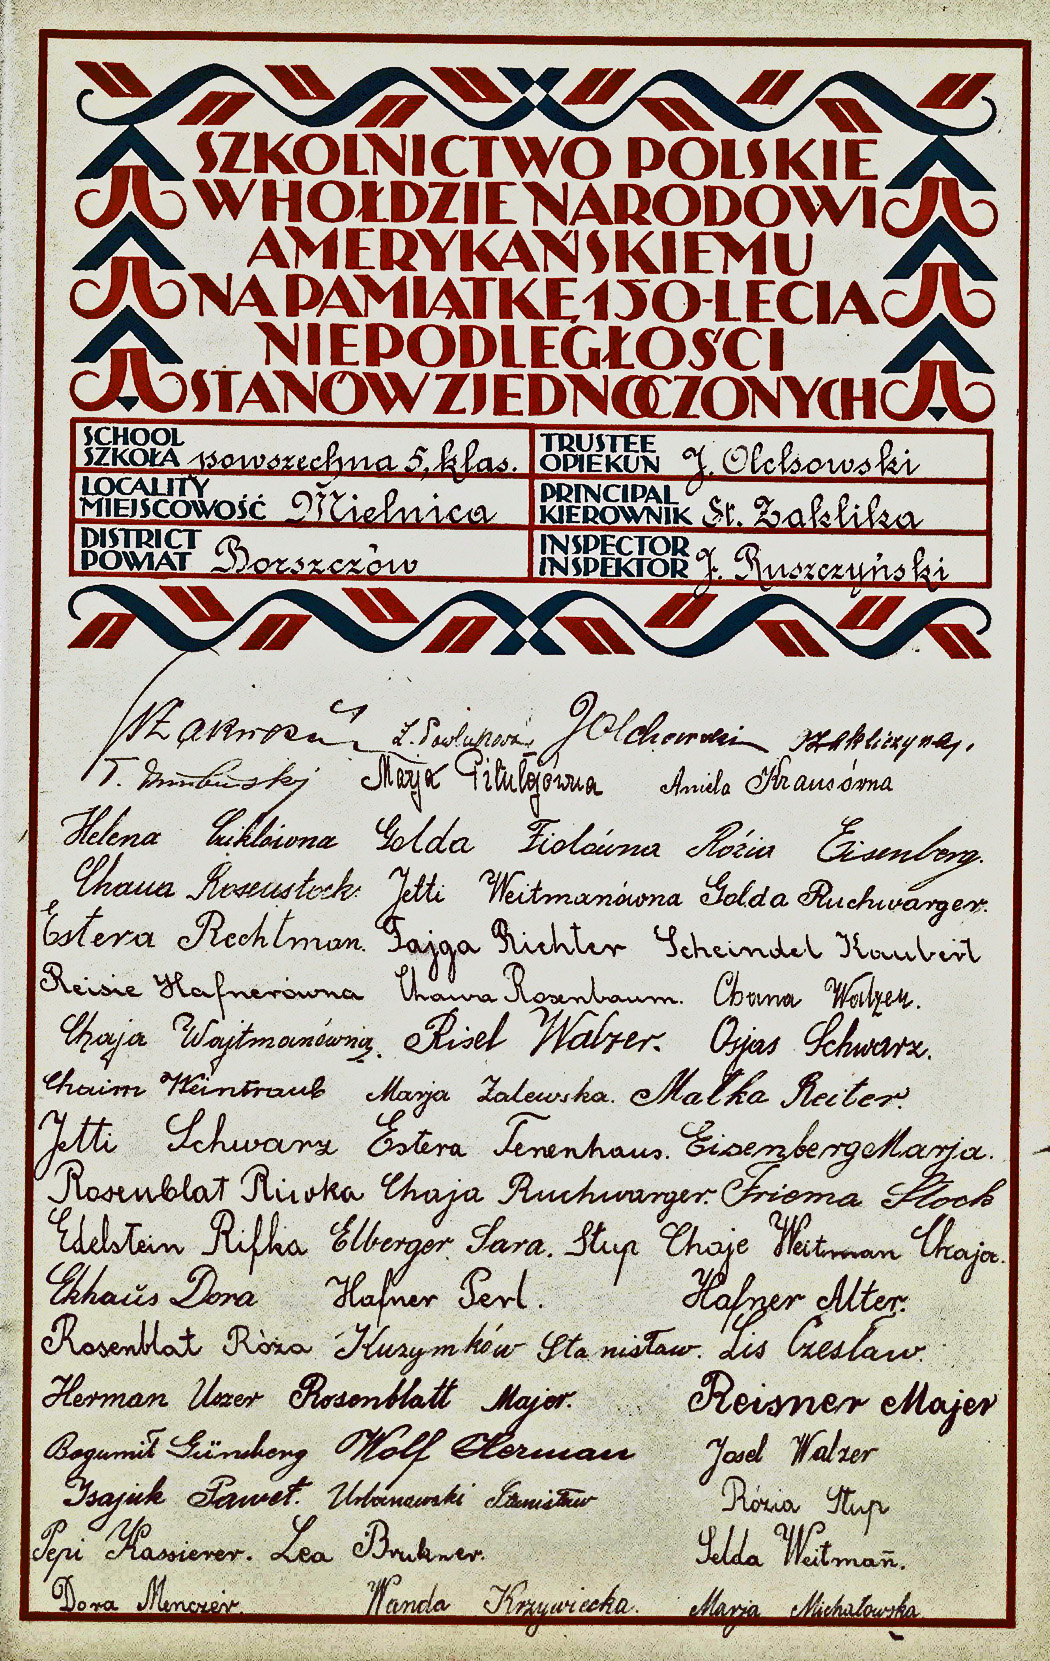 SZKOLNICTWO POLSKIE
W HOŁDZIE NARODOWI
AMERYKAŃSKIEMU
NA PAMIĄTKĘ 150-LECIA
NIEPODLEGŁOŚCI
STANÓW ZJEDNOCZONYCH
SCHOOL
SZKOŁA powszechna 5. klas.
TRUSTEE
OPIEKUN J. Olchowski
LOCALITY
MIEJSCOWOŚĆ Mielnica
PRINCIPAL
KIEROWNIK St. Zaklika
DISTRICT
POWIAT Borszczów
INSPECTOR
INSPEKTOR J. Ruszczyński
JOlchowski
T. Marja Pitułejówna Aniela Krausówna
Helena Golda Fiolówna Rózia Eisenberg.
Chaua Rosenstock. Jetti Weitmanówna Golda Ruchwarger.
Estera Rechtman. Fajga Richter Scheindel Kaubert
Reisie Hafnerówna Chawa Rosenbaum. Chana Walzer.
Chaja Wajtmanówna. Risel Walzer. Osjas Schwarz.
Chaim Weintraub Marja Zalewska. Malka Reiter.
Jetti Schwarz Estera Tenenhaus. Eisenberg Marja.
Rosenblat Riwka Chaja Ruchwarger. Frioma Stock
Edelstein Rifka Elberger Sara. Stup Chaje Weitman Chaja.
Ekhaus Dora Hafner Perl. Hafner Alter.
Rosenblat Róża Kuzymków Stanisław. Lis Czesław.
Herman Uszer Rosenblatt Major. Reisner Majer
Bogumił Günsberg Wolf Herman Josel Walzer
Isajuk Paweł. Urbanowski Stanisław Rózia Stup
Pepi Kassierer. Lea Brukner. Selda Weitman.
Dora Menczer. Wanda Krzywiecka. Marja Michałowska